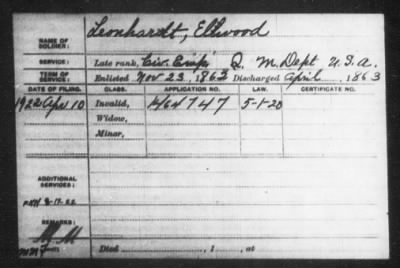 NAME OF SOLDIER: Leonhardt, Ellwood
SERVICE: Late rank, Civ. Emp. Q. M. Dept U.S.A.
TERM OF SERVICE: Enlisted Nov 23, 1862 Discharged April, 1863
DATE OF FILING. CLASS. APPLICATION NO. LAW. CERTIFICATE NO.
1922 Apr 10 Invalid, 1464747 5-1-20
Widow,
Minor,
ADDITIONAL SERVICES:
REMARKS:
Died , 1 , at